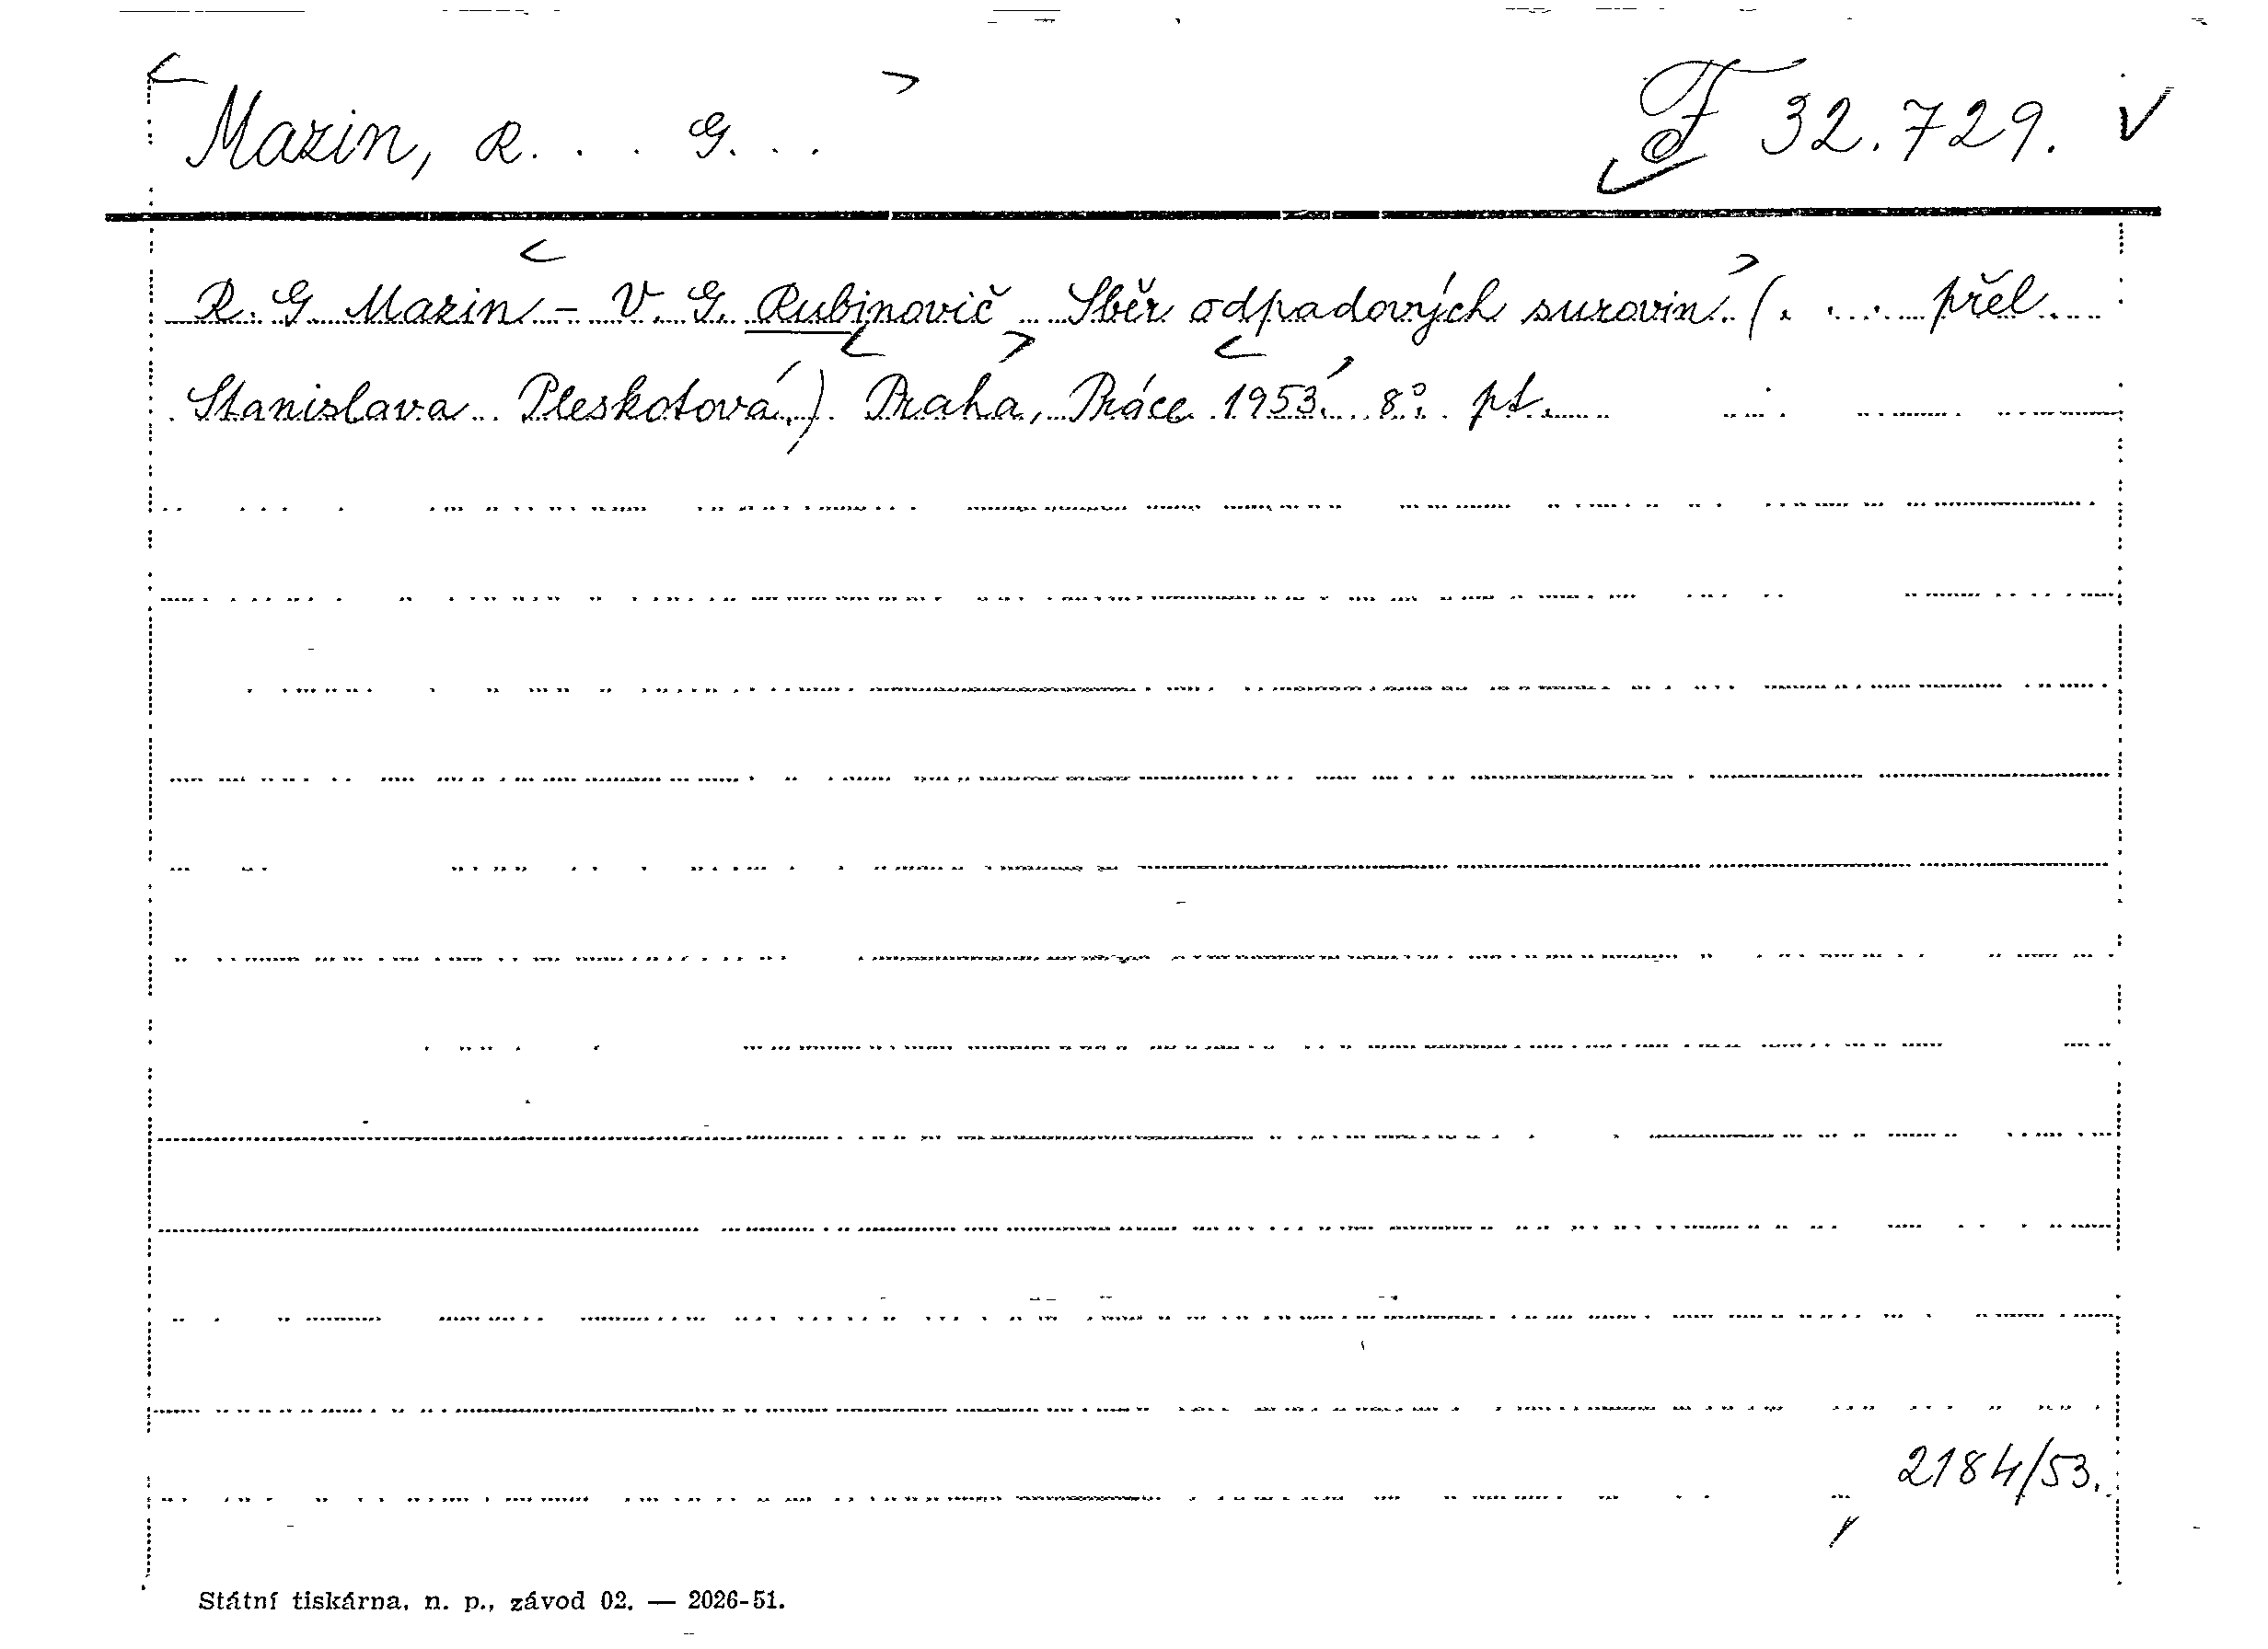 Mazin, R. . . . G. . .
F 32.729. V
R. G. Mazin – V. G. Rubinovič Sběr odpadových surovin. (. . . . přel.
Stanislava Pleskotová.) Praha, Práce 1953. 8°. pt.
2184/53.
Státní tiskárna, n. p., závod 02. — 2026-51.